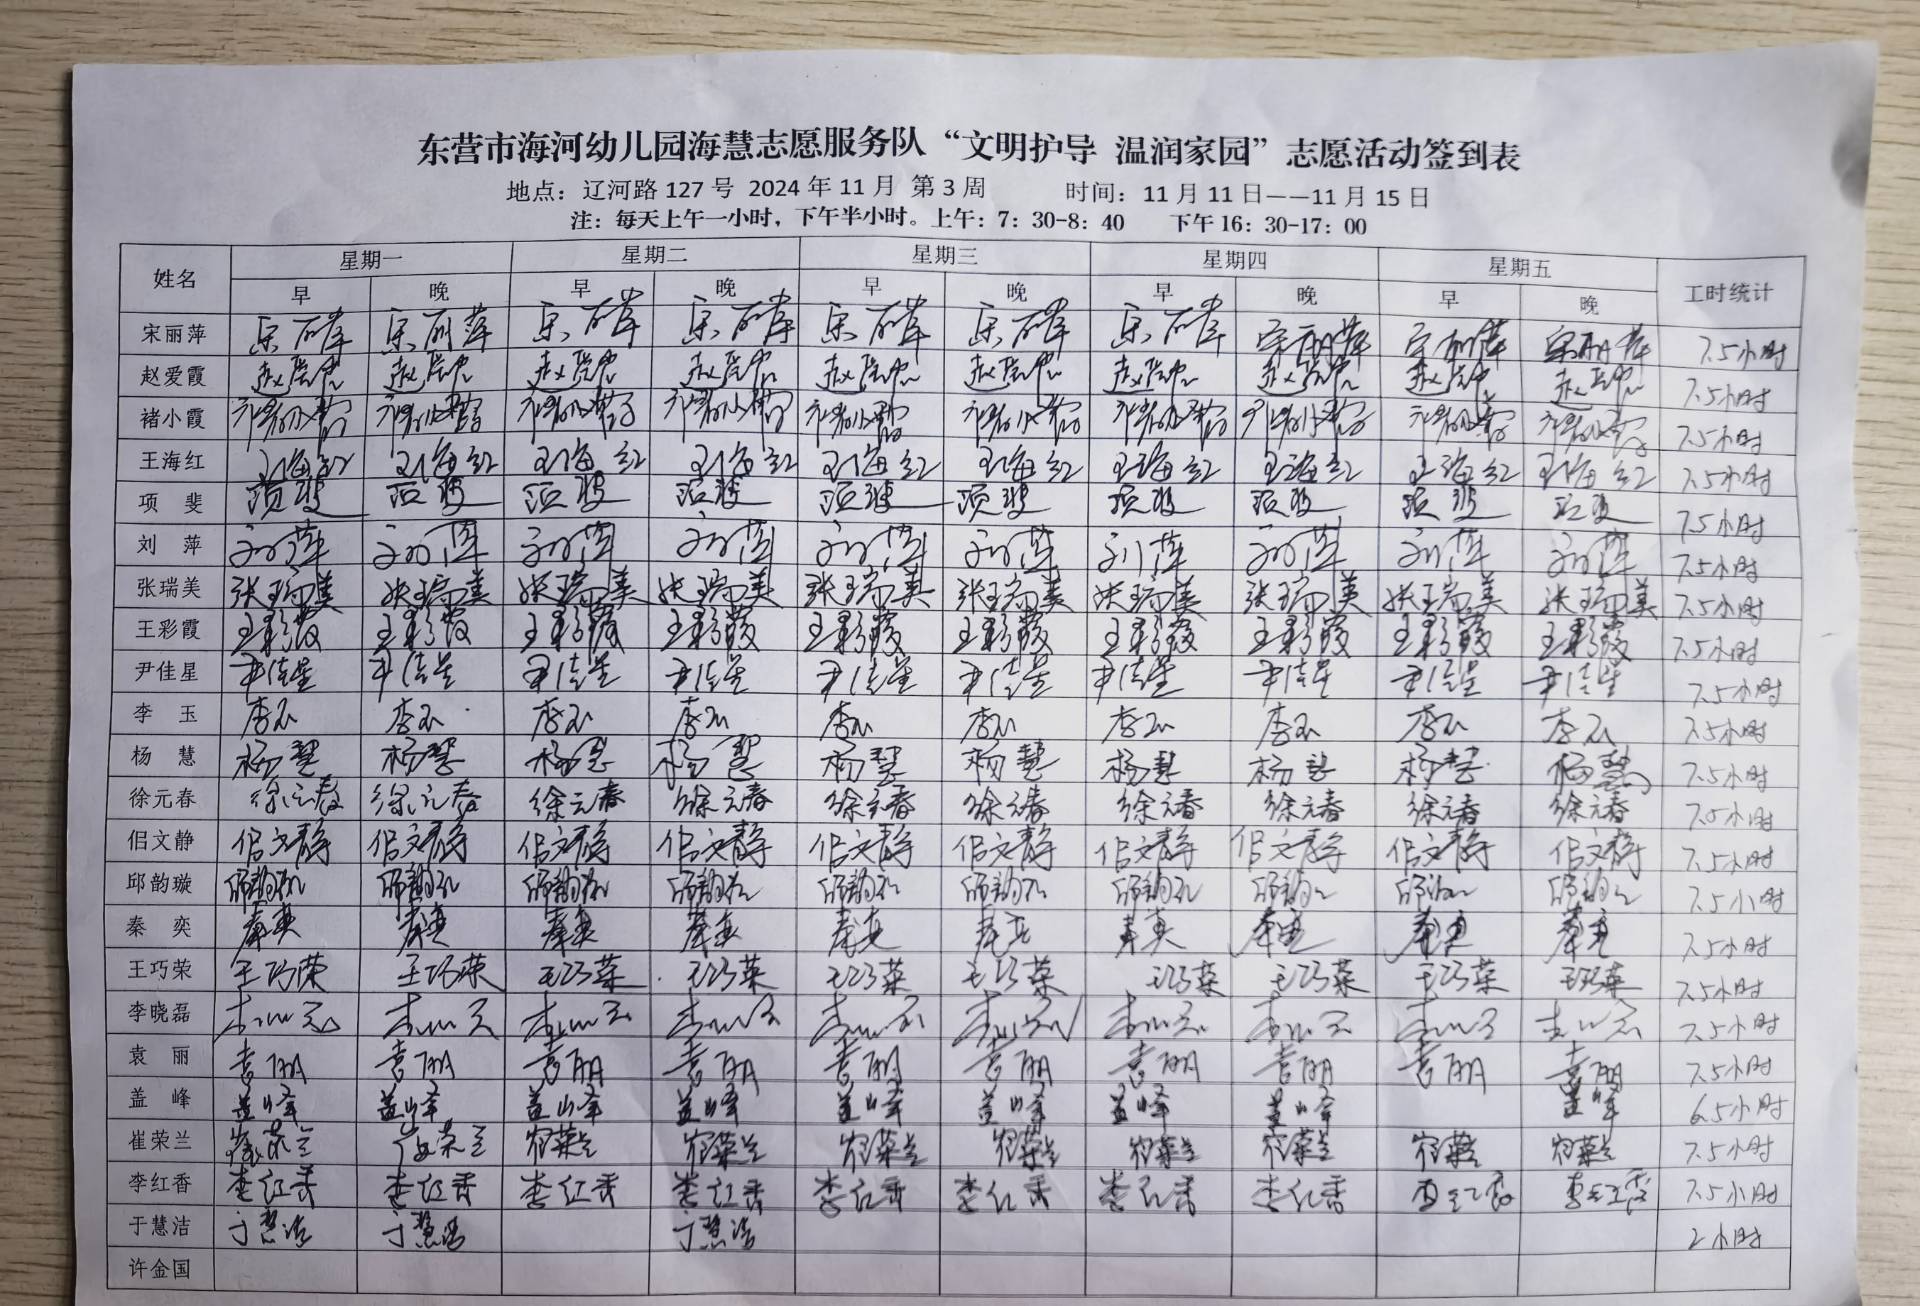 东营市海河幼儿园海慧志愿服务队“文明护导 温润家园”志愿活动签到表
地点：辽河路 127 号 2024 年 11 月 第 3 周 时间：11 月 11 日——11 月 15 日
注：每天上午一小时，下午半小时。上午：7：30-8：40 下午 16：30-17：00
姓名 星期一 星期二 星期三 星期四 星期五 工时统计
早 晚 早 晚 早 晚 早 晚 早 晚
宋丽萍 宋丽萍 宋丽萍 宋丽萍 宋丽萍 宋丽萍 宋丽萍 宋丽萍 宋丽萍 宋丽萍 宋丽萍 7.5小时
赵爱霞 赵爱霞 赵爱霞 赵爱霞 赵爱霞 赵爱霞 赵爱霞 赵爱霞 赵爱霞 赵爱霞 赵爱霞 7.5小时
褚小霞 褚小霞 褚小霞 褚小霞 褚小霞 褚小霞 褚小霞 褚小霞 褚小霞 褚小霞 褚小霞 7.5小时
王海红 王海红 王海红 王海红 王海红 王海红 王海红 王海红 王海红 王海红 王海红 7.5小时
项 斐 项斐 项斐 项斐 项斐 项斐 项斐 项斐 项斐 项斐 项斐 7.5小时
刘 萍 刘萍 刘萍 刘萍 刘萍 刘萍 刘萍 刘萍 刘萍 刘萍 刘萍 7.5小时
张瑞美 张瑞美 张瑞美 张瑞美 张瑞美 张瑞美 张瑞美 张瑞美 张瑞美 张瑞美 张瑞美 7.5小时
王彩霞 王彩霞 王彩霞 王彩霞 王彩霞 王彩霞 王彩霞 王彩霞 王彩霞 王彩霞 王彩霞 7.5小时
尹佳星 尹佳星 尹佳星 尹佳星 尹佳星 尹佳星 尹佳星 尹佳星 尹佳星 尹佳星 尹佳星 7.5小时
李 玉 李玉 李玉 李玉 李玉 李玉 李玉 李玉 李玉 李玉 李玉 7.5小时
杨 慧 杨慧 杨慧 杨慧 杨慧 杨慧 杨慧 杨慧 杨慧 杨慧 杨慧 7.5小时
徐元春 徐元春 徐元春 徐元春 徐元春 徐元春 徐元春 徐元春 徐元春 徐元春 徐元春 7.5小时
佀文静 佀文静 佀文静 佀文静 佀文静 佀文静 佀文静 佀文静 佀文静 佀文静 佀文静 7.5小时
邱韵璇 邱韵璇 邱韵璇 邱韵璇 邱韵璇 邱韵璇 邱韵璇 邱韵璇 邱韵璇 邱韵璇 邱韵璇 7.5小时
秦 奕 秦奕 秦奕 秦奕 秦奕 秦奕 秦奕 秦奕 秦奕 秦奕 秦奕 7.5小时
王巧荣 王巧荣 王巧荣 王巧荣 王巧荣 王巧荣 王巧荣 王巧荣 王巧荣 王巧荣 王巧荣 7.5小时
李晓磊 李晓磊 李晓磊 李晓磊 李晓磊 李晓磊 李晓磊 李晓磊 李晓磊 李晓磊 李晓磊 7.5小时
袁 丽 袁丽 袁丽 袁丽 袁丽 袁丽 袁丽 袁丽 袁丽 袁丽 袁丽 7.5小时
盖 峰 盖峰 盖峰 盖峰 盖峰 盖峰 盖峰 盖峰 盖峰 盖峰 6.5小时
崔荣兰 崔荣兰 崔荣兰 崔荣兰 崔荣兰 崔荣兰 崔荣兰 崔荣兰 崔荣兰 崔荣兰 崔荣兰 7.5小时
李红香 李红香 李红香 李红香 李红香 李红香 李红香 李红香 李红香 李红香 李红香 7.5小时
于慧洁 于慧洁 于慧洁 于慧洁 2小时
许金国